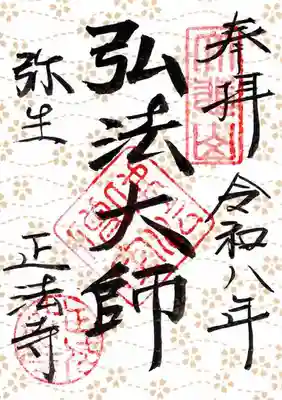 奉拝
令和八年
弘法大師
弥生
正法寺